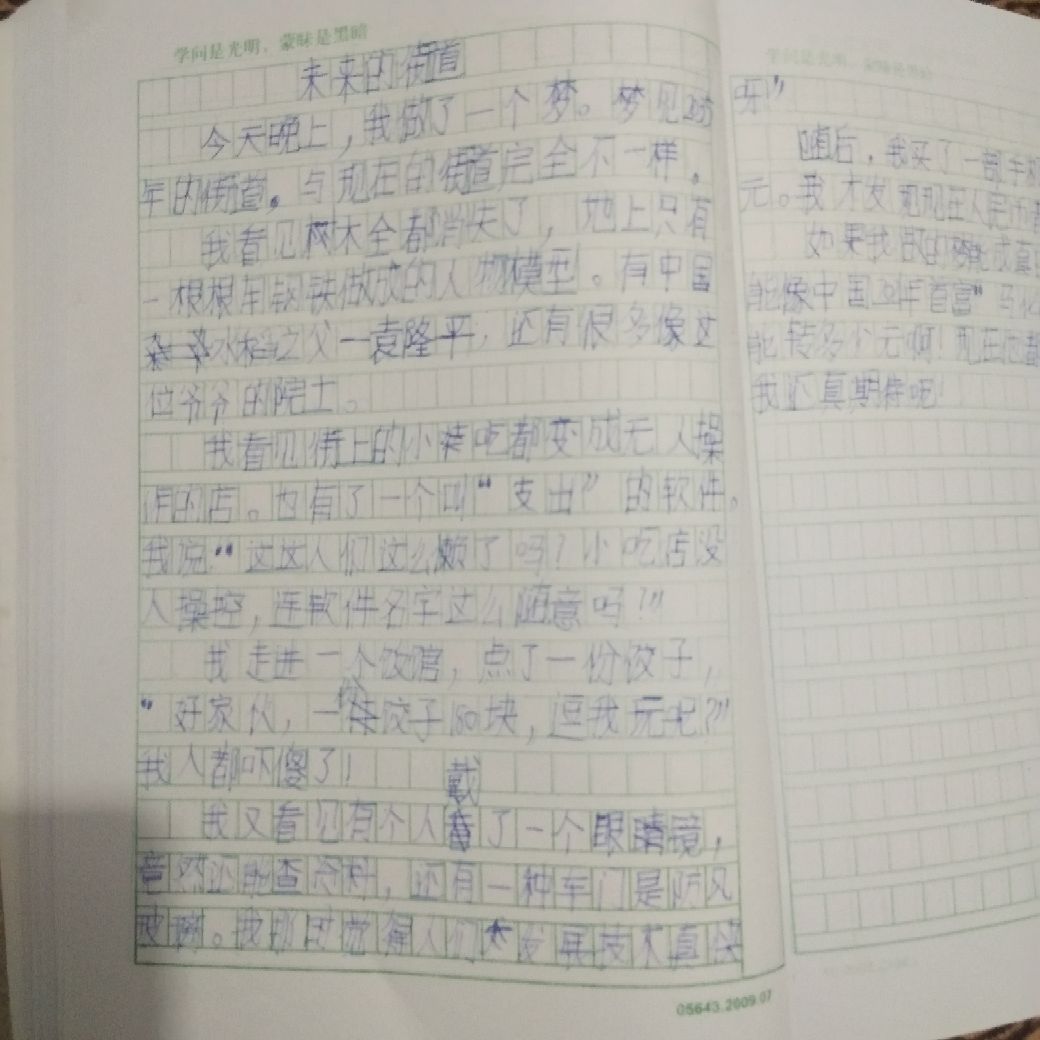 学问是光明，蒙昧是黑暗
未来的街道
今天晚上，我做了一个梦。梦见
年的街道。与现在的街道完全不一样。
我看见树木全都消失了，地上只有
一根根用钢铁做成的人物模型。有中国
水稻之父一袁隆平，还有很多像这
位爷爷的院士。
我看见街上的小吃都变成无人操
作的店。也有了一个叫“支出”的软件。
我说“这这人们这么懒了吗？小吃店没
人操控，连软件名字这么随意吗？”
我走进一个饺馆，点了一份饺子，
“好家伙，一份饺子180块，逗我玩呢？”
我人都吓傻了！
戴
我又看见有个人了一个眼睛镜，
竟然还能查资料，还有一种车门是防风
玻璃。我那时觉得人们发展技术真快
05643.2009.07
学问是光明，蒙昧是黑暗
呀！”
随后，我买了一部手机
元。我才发现现在人民币
如果我做的梦能成真
能像中国首富“马化
能转多少元啊！现在他都
我还真期待呢！